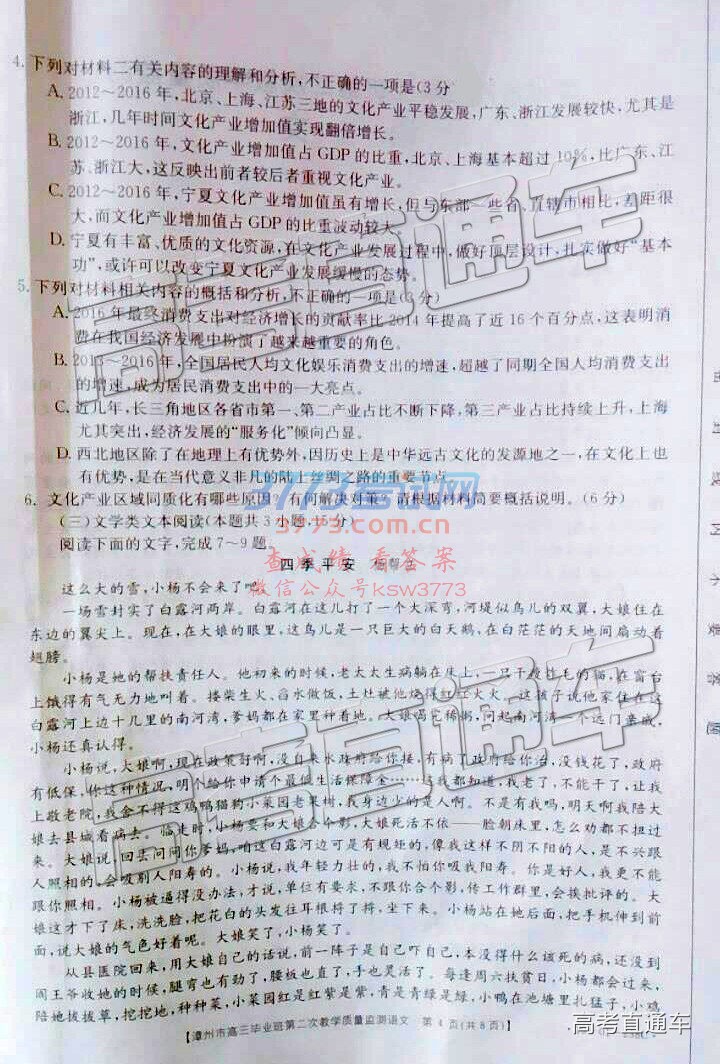 4. 下列对材料二有关内容的理解和分析,不正确的一项是(3分
A. 2012～2016年,北京、上海、江苏三地的文化产业平稳发展,广东、浙江发展较快,尤其是
浙江,几年时间文化产业增加值实现翻倍增长。
B. 2012～2016年,文化产业增加值占GDP的比重,北京、上海基本超过10%,比广东、江
苏、浙江大,这反映出前者较后者重视文化产业。
C. 2012～2016年,宁夏文化产业增加值虽有增长,但与东部一些省、直辖市相比,差距很
大,而文化产业增加值占GDP的比重波动较大。
D. 宁夏有丰富、优质的文化资源,在文化产业发展过程中,做好顶层设计,扎实做好“基本
功”,或许可以改变宁夏文化产业发展缓慢的态势。
5. 下列对材料相关内容的概括和分析,不正确的一项是(3分)
A. 2016年最终消费支出对经济增长的贡献率比2014年提高了近16个百分点,这表明消
费在我国经济发展中扮演了越来越重要的角色。
B. 2013～2016年,全国居民人均文化娱乐消费支出的增速,超越了同期全国人均消费支出
的增速,成为居民消费支出中的一大亮点。
C. 近几年,长三角地区各省市第一、第二产业占比不断下降,第三产业占比持续上升,上海
尤其突出,经济发展的“服务化”倾向凸显。
D. 西北地区除了在地理上有优势,因历史上是中华远古文化的发源地之一,在文化上也
有优势,是在当代意义非凡的陆上丝绸之路的重要节点
6. 文化产业区域同质化有哪些原因?有何解决对策?请根据材料简要概括说明。(6分)
(三)文学类文本阅读(本题共3小题,15分)
阅读下面的文字,完成7～9题
四季平安 杨帮立
这么大的雪,小杨不会来了吧
一场雪封实了白露河两岸。白露河在这儿打了一个大深弯,河堤似鸟儿的双翼,大娘住在
东边的翼尖上。现在,在大娘的眼里,这鸟儿是一只巨大的白天鹅,在白茫茫的天地间扇动着
翅膀。
小杨是她的帮扶责任人。他初来的时候,老太太生病躺在床上,一只干敖杜毛的猫,在窗台
上饿得有气无力地叫着。搂柴生火、舀水做饭,土灶被他烧得红红火火。这孩子说他家住在这
白露河上边十几里的南河湾,爹妈都在家里种着地。大娘喝完稀粥,问起南河湾一个远门亲戚,
小杨还真认得。
小杨说,大娘啊,现在政策好啊,没自来水政府给你接,有病了政府给你治,没钱花了,政府
有低保,你这种情况,明个给你申请个最低生活保障金……这我都知道,我老了,不能干了,让我
上敬老院,我舍不得这鸡鸭猫狗小菜园老果树,我身边少的是人啊。不是有我吗,明天啊我陪大
娘去县城看病去。临走时,小杨要和大娘合个影,大娘死活不依——脸朝床里,怎么劝都不担过
来。大娘说,回去问问你爹妈,咱这白露河边可是有规矩的,像我这样不阴不阳的人,是不兴跟
人照相的,会吸别人阳寿的。小杨说,我年轻力壮的,我不怕你吸我阳寿。你是好人,我更不能
跟你照相。小杨被逼得没办法,才说,单位有要求,不跟你合个影,传工作群里,会挨批评的。大
娘这才下了床,洗洗脸,把花白的头发往耳根捋了捋,坐下来。小杨站在她后面,把手机伸到前
面,说大娘的气色好着呢。大娘笑了,小杨笑了。
从县医院回来,用大娘自己的话说,前一阵子是自己吓自己,本没得什么该死的病,还没到
阎王爷收她的时候,腿弯也有劲了,腰板也直了,手
也灵活了。每逢周六扶贫日,小杨都会来帮她
拔拔草,挖挖地,种种菜,小菜园
青是青绿是绿,小鹅
【漳州市高三毕业班第二次教学质量监测语文 第4页(共8页)】
高考直通车
高考直通车
高考直通车
3773考试网
3773.com.cn
查成绩 看答案
微信公众号ksw3773
高考直通车